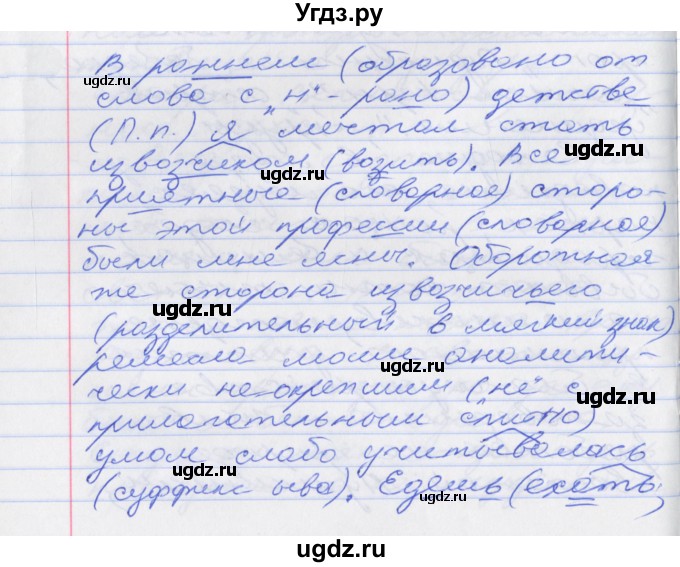 Угдз.ру
В раннем (образовано от
слова с "н"-рано) детстве
(П.п.) я мечтал стать
извозчиком (возить). Все
приятные (словарное) сторо-
ны этой профессии (словарное)
были мне ясны. Оборотная
же сторона извозчичьего
(разделительный в мягкий знак)
ремесла моим аналити-
чески неокрепшим (не с
прилагательным слитно)
умом слабо учитывалась
(суффикс ыва). Едешь (ехать,
ugdz.ru
ugdz.ru
ugdz.ru
ugdz.ru
ugdz.ru
ugdz.ru
ugdz.ru
ugdz.ru
ugdz.ru
ugdz.ru